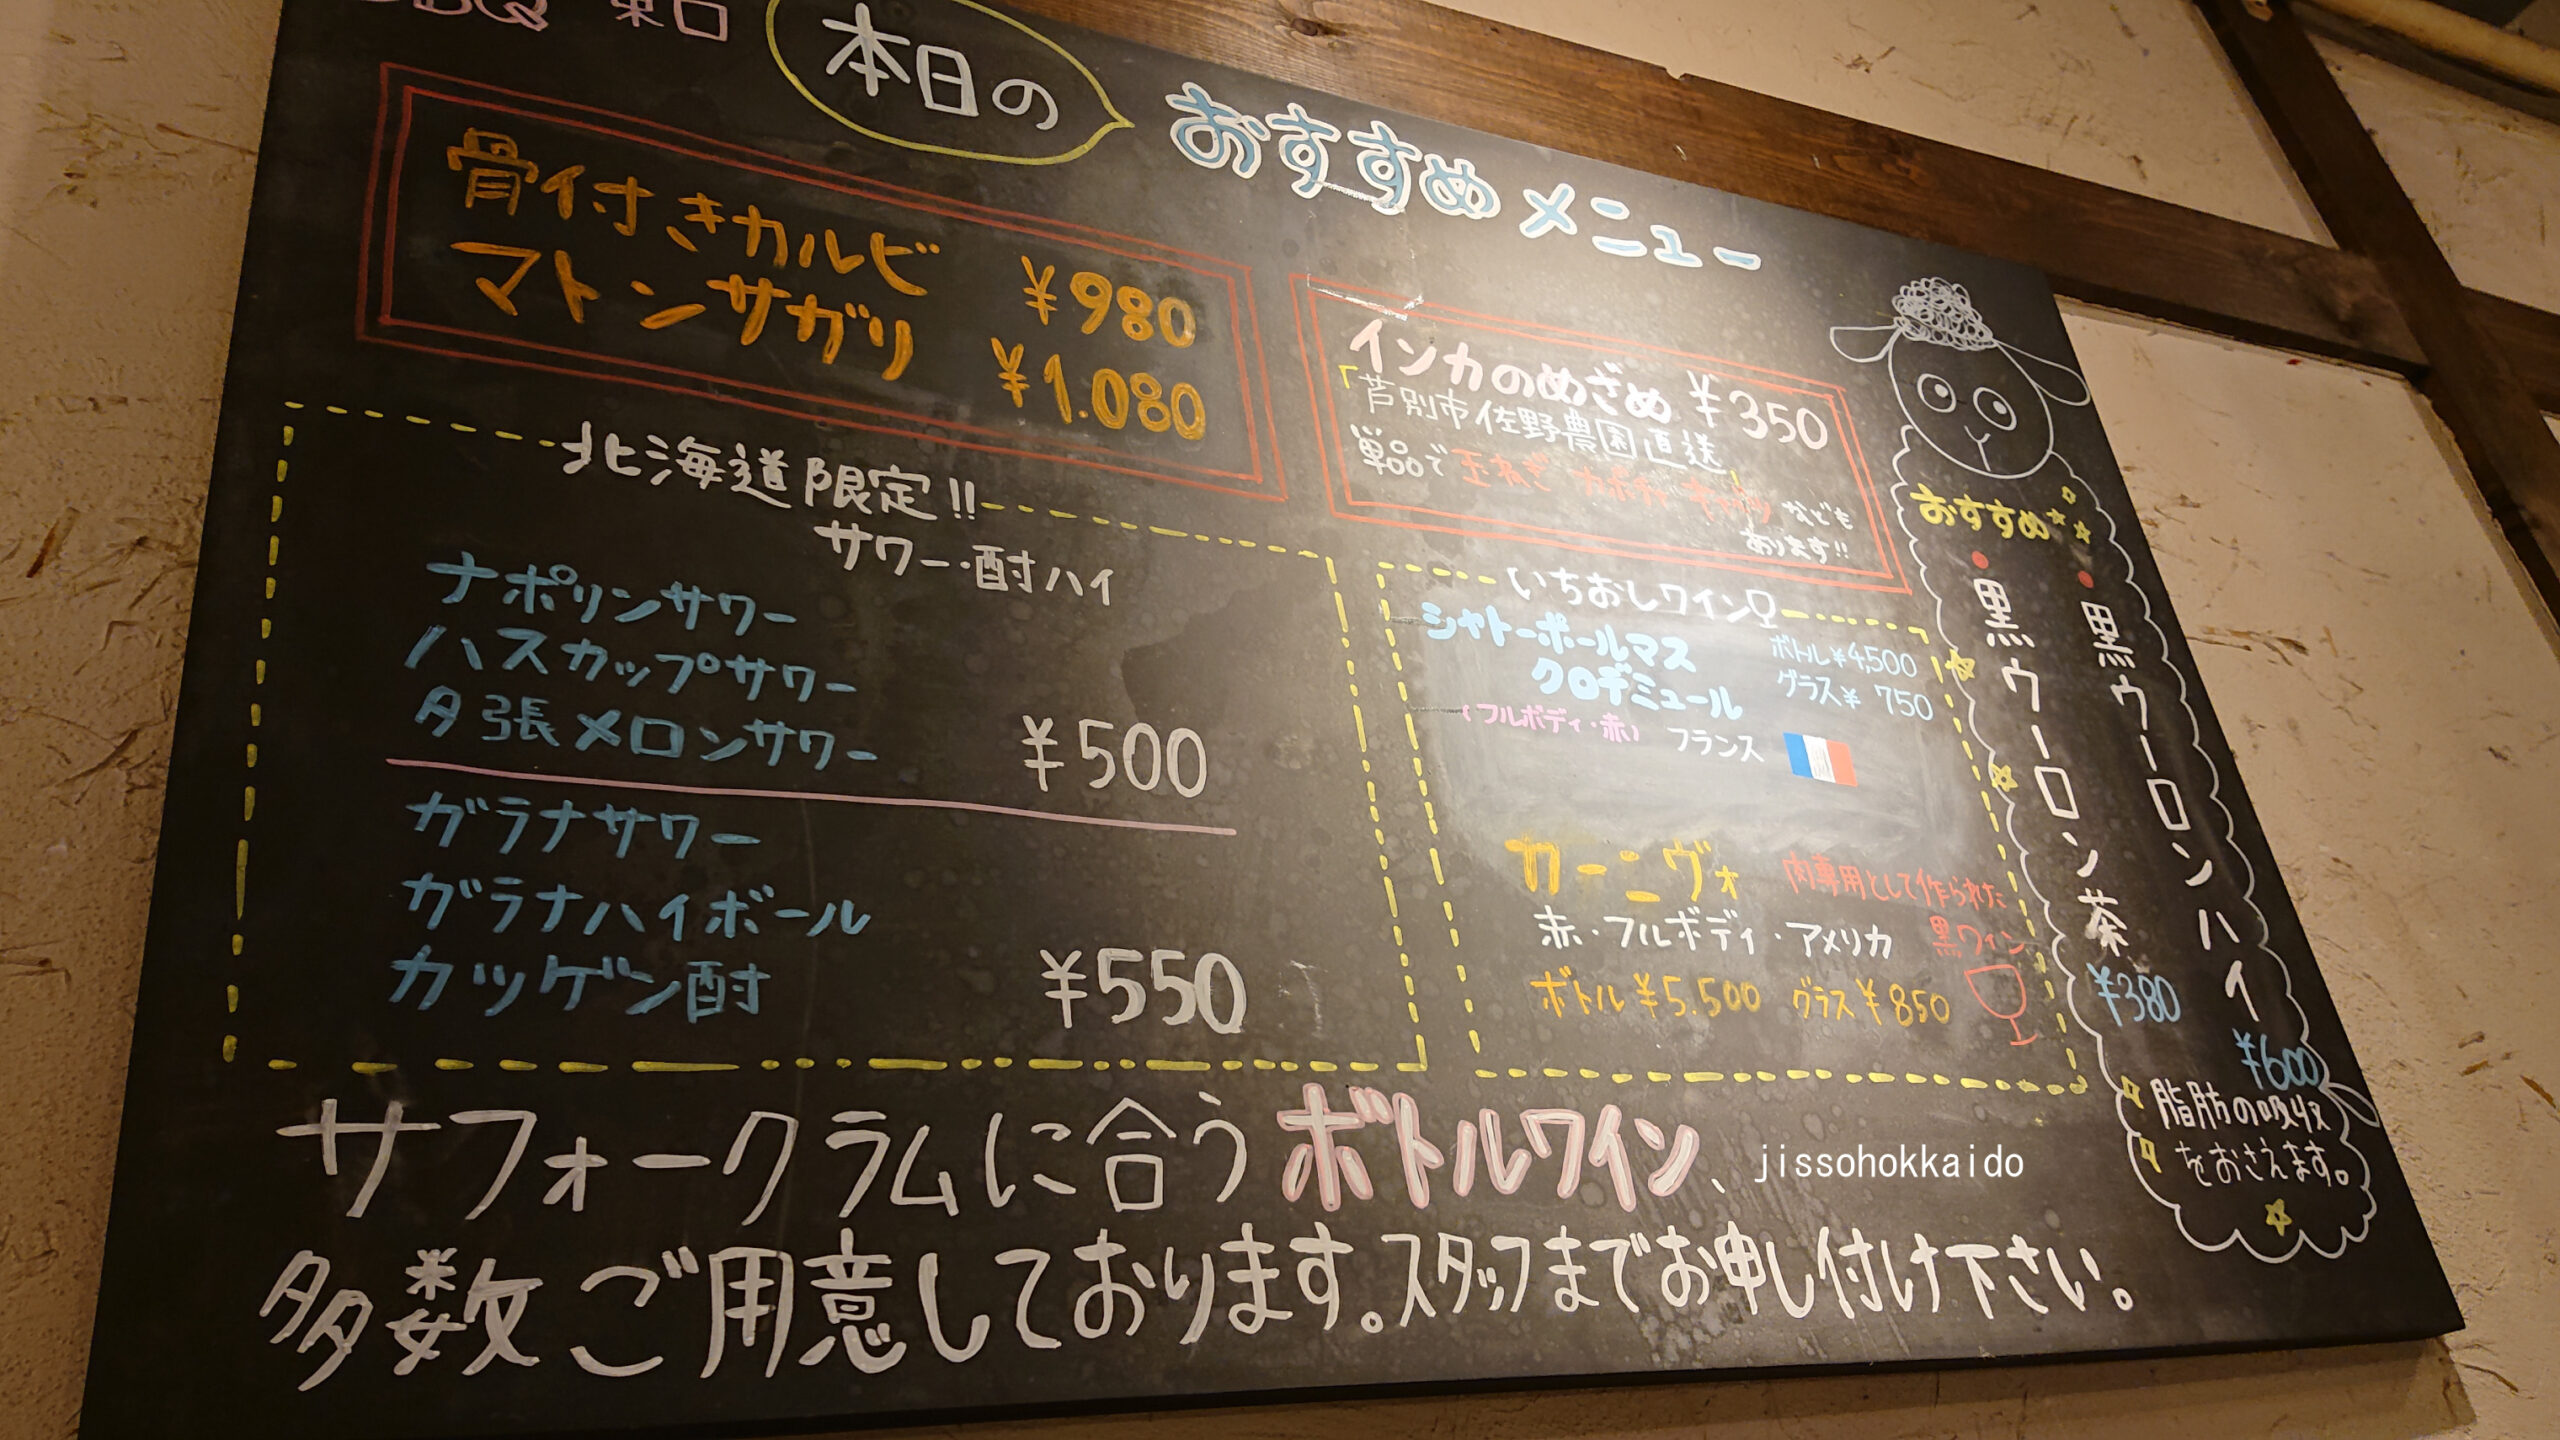 BBQ 東口
本日の
おすすめメニュー
骨付きカルビ ¥980
マトンサガリ ¥1.080
インカのめざめ ¥350
「芦別市佐野農園直送」
単品で 玉ねぎ カボチャ キャベツ なども
あります!!
北海道限定!!
サワー・酎ハイ
ナポリンサワー
ハスカップサワー
夕張メロンサワー ¥500
ガラナサワー
ガラナハイボール
カツゲン酎 ¥550
いちおしワイン
シャトーポールマス
クロデミュール
ボトル¥4,500
グラス¥ 750
(フルボディ・赤) フランス
カーニヴォ
肉専用として作られた
黒ワイン
赤・フルボディ・アメリカ
ボトル¥5.500 グラス¥850
おすすめ
・黒ウーロンハイ ¥600
・黒ウーロン茶 ¥380
脂肪の吸収
をおさえます。
サフォークラムに合うボトルワイン、
多数ご用意しております。スタッフまでお申し付け下さい。
jissohokkaido